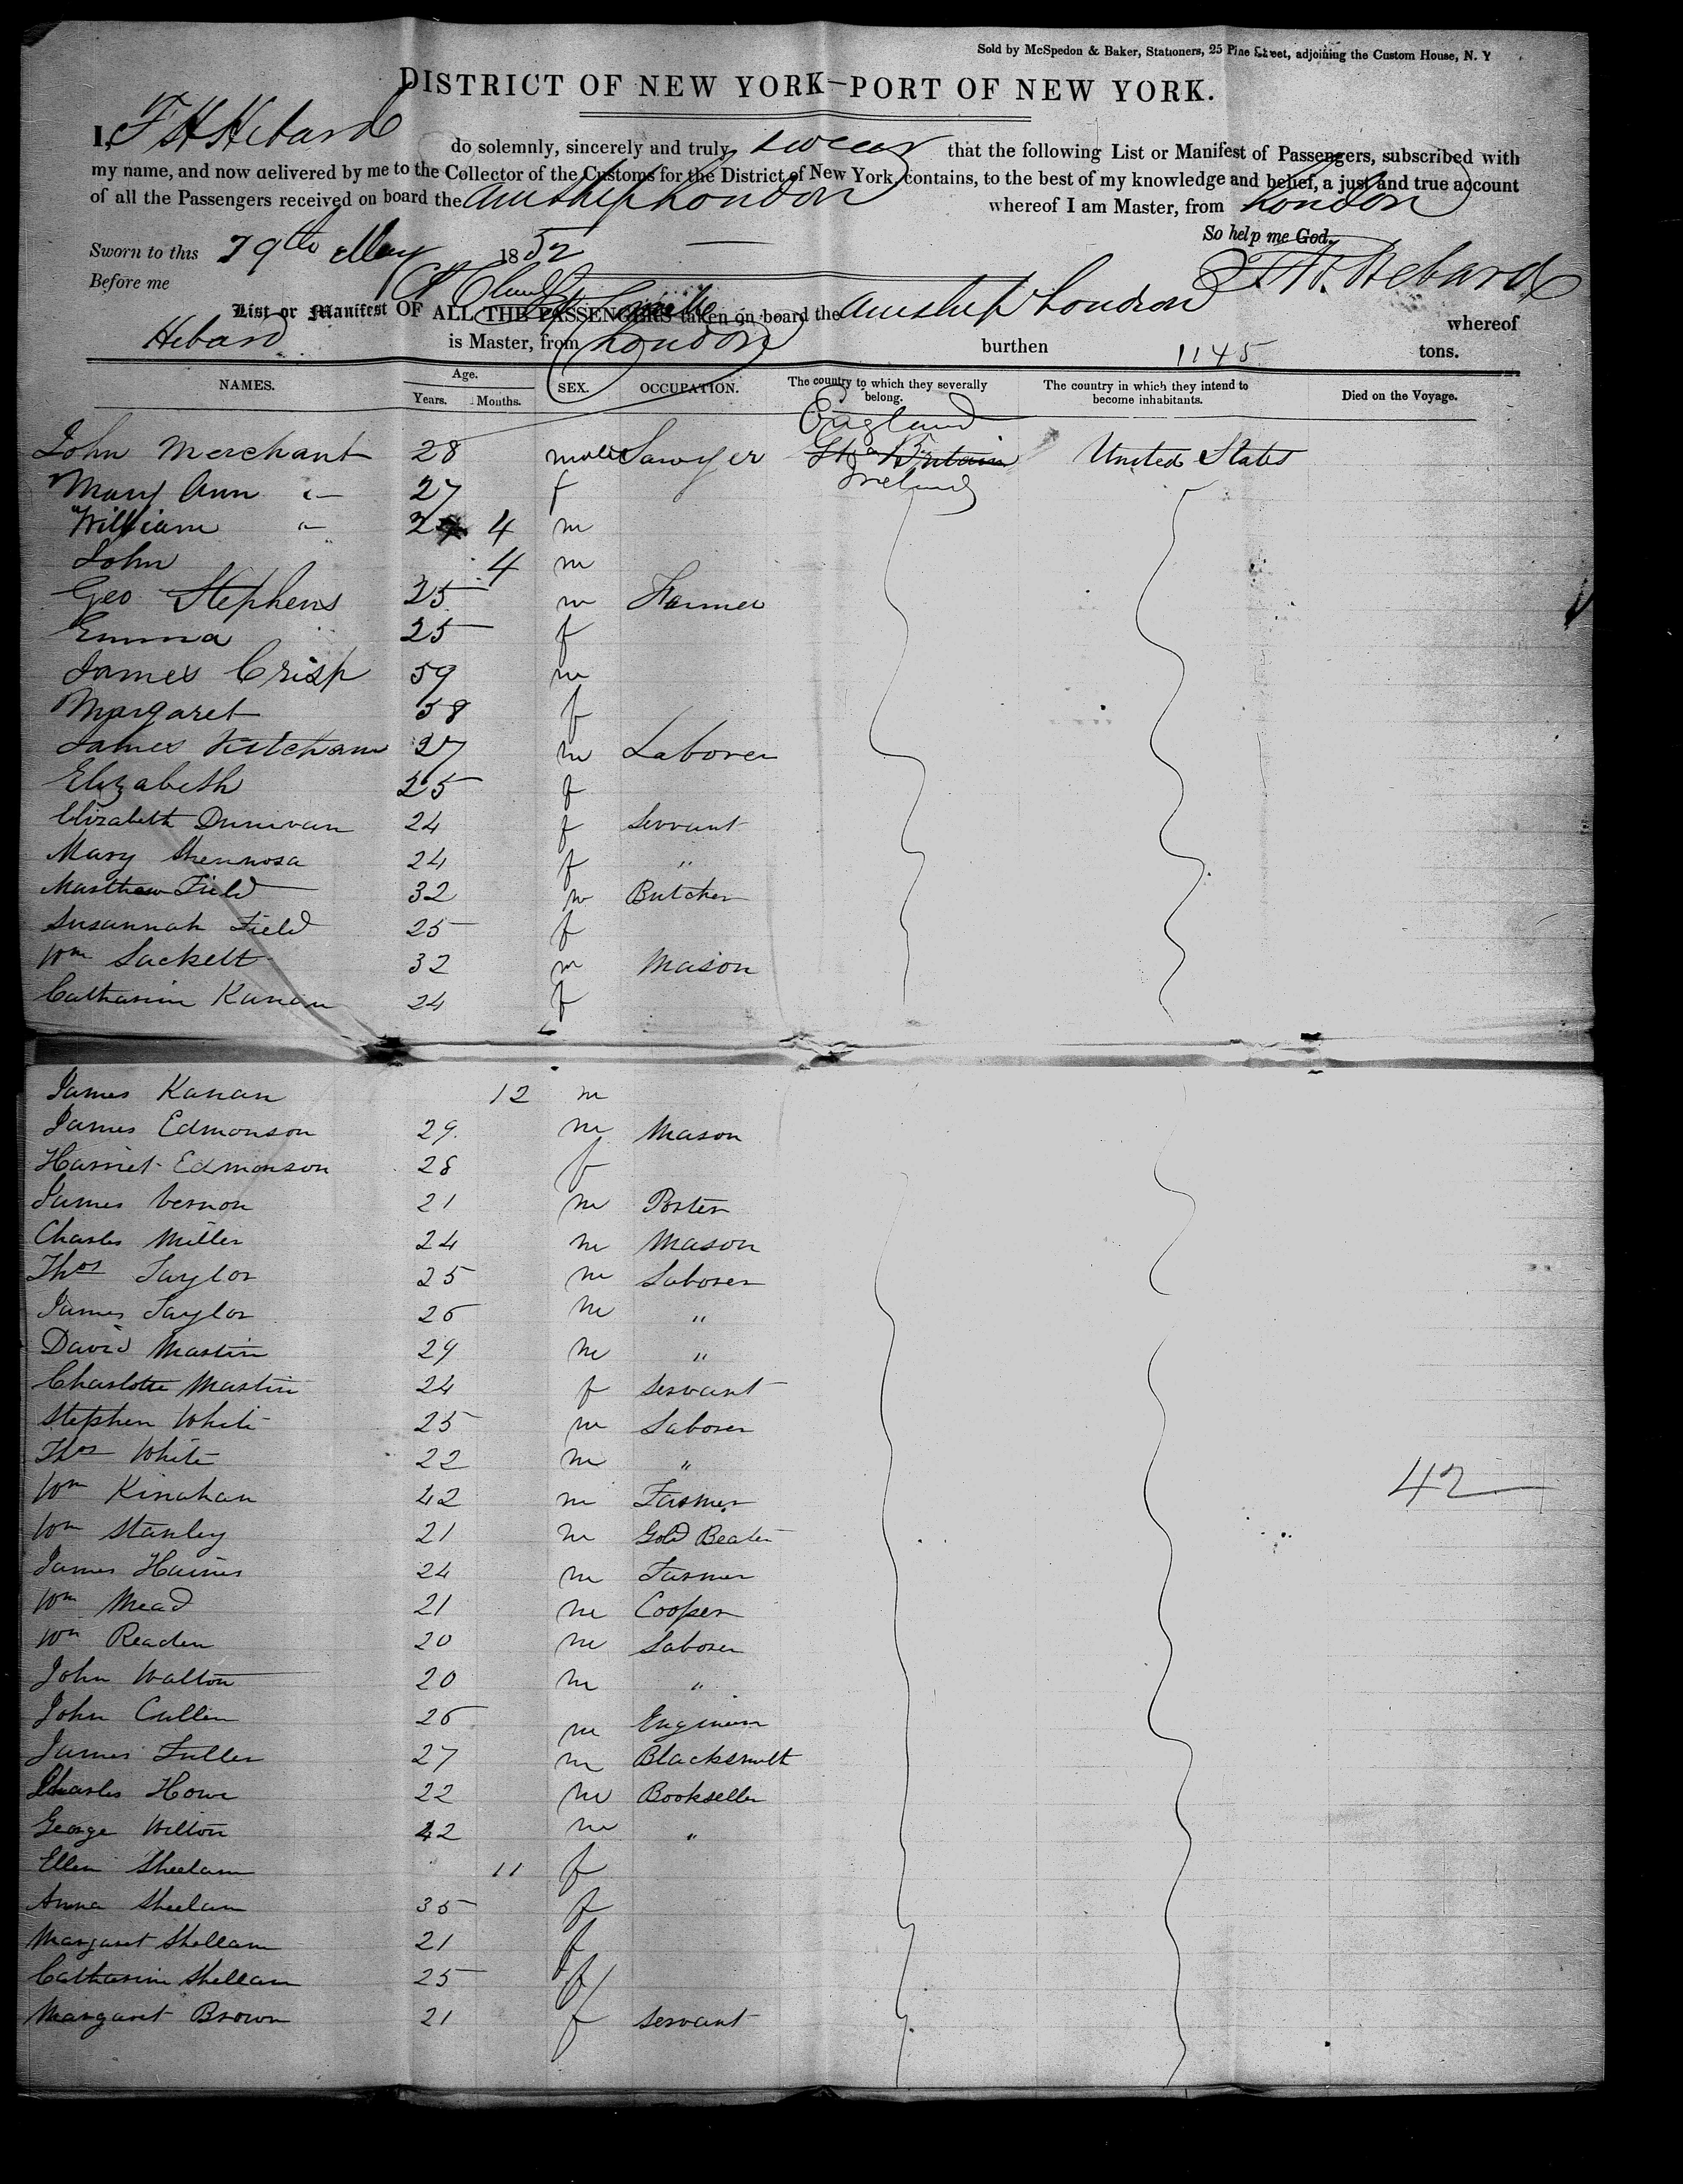 Sold by McSpedon & Baker, Stationers, 25 Pine Street, adjoining the Custom House, N. Y
DISTRICT OF NEW YORK—PORT OF NEW YORK.
I, F H Hebard do solemnly, sincerely and truly swear that the following List or Manifest of Passengers, subscribed with
my name, and now delivered by me to the Collector of the Customs for the District of New York, contains, to the best of my knowledge and belief, a just and true account
of all the Passengers received on board the Am Ship London whereof I am Master, from London
So help me God.
Sworn to this 19th May 1852 F H Hebard
Before me
List or Manifest OF ALL THE PASSENGERS taken on board the Am Ship London whereof
Hebard is Master, from London burthen 1145 tons.
NAMES. Age. Years. Months. SEX. OCCUPATION. The country to which they severally belong. The country in which they intend to become inhabitants. Died on the Voyage.
England
John Merchant 28 male Sawyer Gt Britain United States
Mary Ann " 27 f Ireland
William " 2 4 m
John 4 m
Geo Stephens 25 m Farmer
Emma 25 f
James Crisp 59 m
Margaret 58 f
James Kitcham 27 m Laborer
Elizabeth 25 f
Elizabeth Dunivan 24 f Servant
Mary 24 f "
Matthew Field 32 m Butcher
Susannah Field 25 f
Wm Sackett 32 m Mason
Catharine Kanan 24 f
James Kanan 12 m
James Edmonson 29 m Mason
Harriet Edmonson 28 f
James Vernon 21 m Porter
Charles Miller 24 m Mason
Thos Taylor 25 m Laborer
James Taylor 26 m "
David Martin 29 m "
Charlotte Martin 24 f servant
Stephen White 25 m Laborer
Thos White 22 m "
Wm Kinahan 42 m Farmer 42
Wm Stanley 21 m Gold Beater
James Haines 24 m Farmer
Wm Mead 21 m Cooper
Wm Readen 20 m Laborer
John Walton 20 m "
John Cullin 26 m Engineer
James Fuller 27 m Blacksmith
Charles Howe 22 m Bookseller
George Wilton 42 m "
Ellen Sheelam 11 f
Anna Sheelam 35 f
Margaret Shellam 21 f
Catharine Shellam 25 f
Margaret Brown 21 f servant